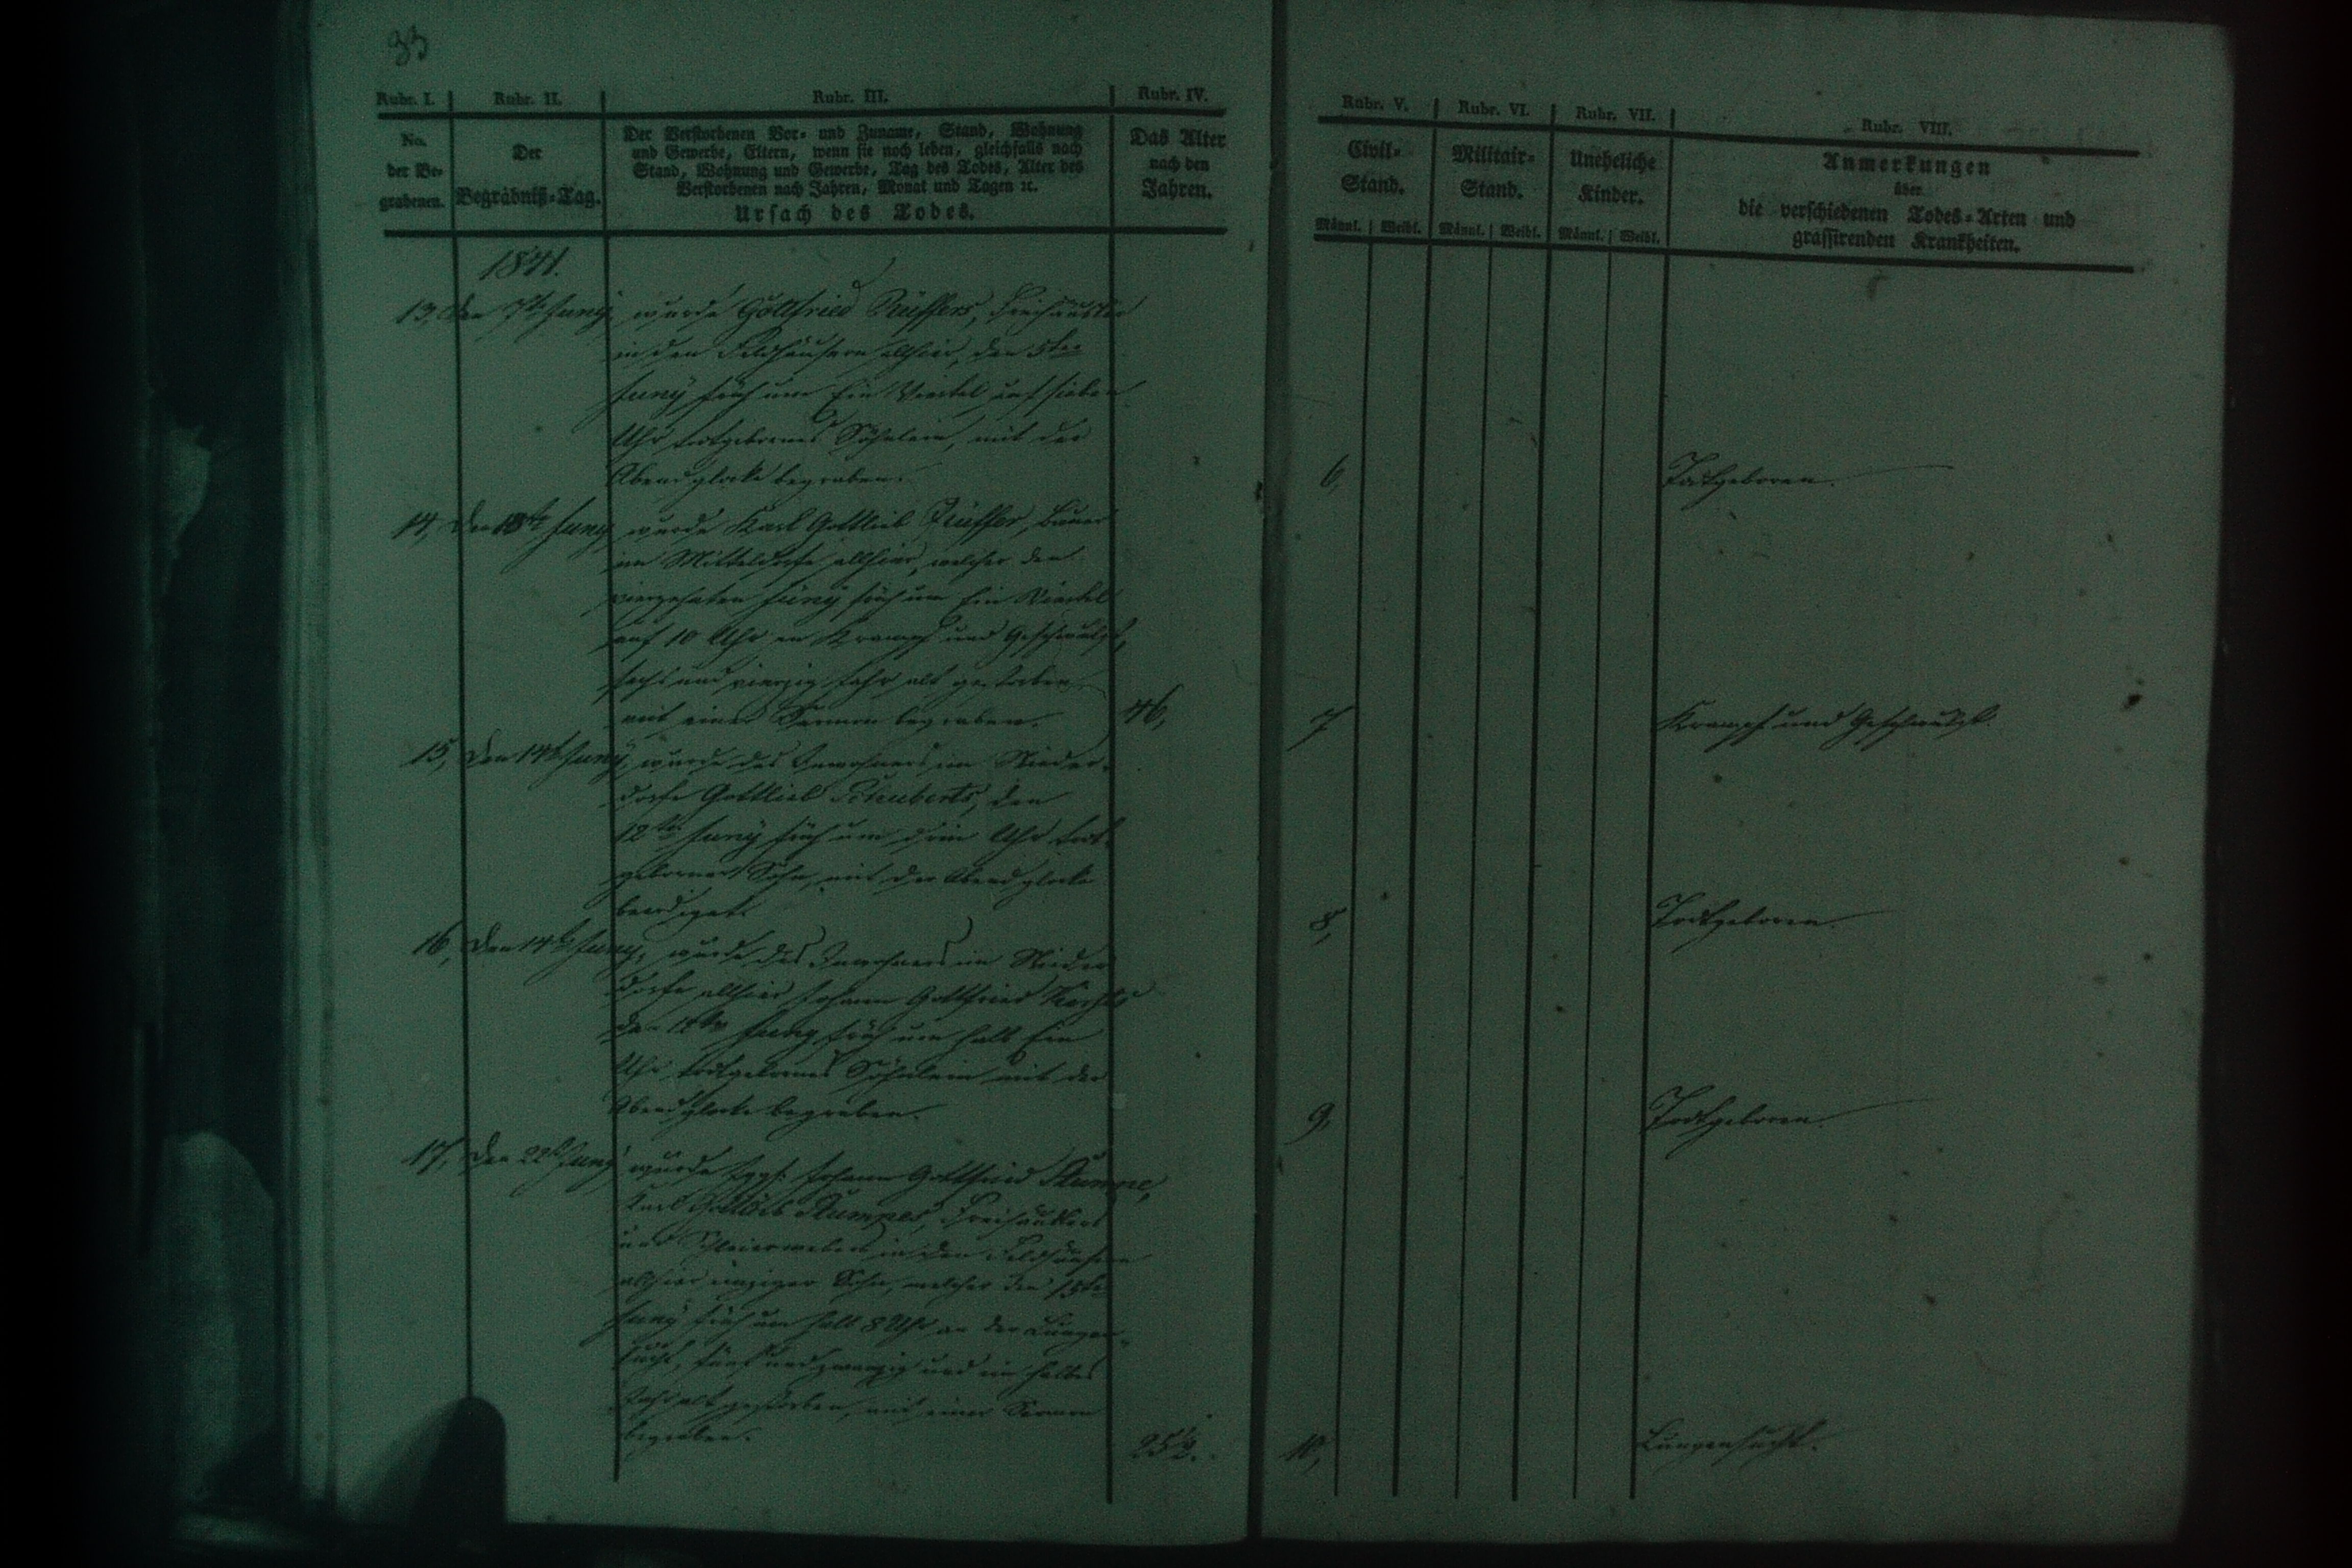 33
Rubr. I. Rubr. II. Rubr. III. Rubr. IV. Rubr. V. Rubr. VI. Rubr. VII. Rubr. VIII.
No. der Be-
grabenen.
Der
Begräbniß-Tag.
Der Verstorbenen Vor- und Zuname, Stand, Wohnung
und Gewerbe, Eltern, wenn sie noch leben, gleichfalls nach
Stand, Wohnung und Gewerbe, Tag des Todes, Alter des
Verstorbenen nach Jahren, Monat und Tagen ꝛc.
Ursach des Todes.
Das Alter
nach den
Jahren.
Civil-
Stand.
Männl. Weibl.
Militair-
Stand.
Männl. Weibl.
Uneheliche
Kinder.
Männl. Weibl.
Anmerkungen
über
die verschiedenen Todes-Arten und
grassirenden Krankheiten.
1841.
13, den 7te Juny, wurde Gottfried Rüffers, Freihäusler
in den Feldhäusern allhier, den 5ten
Juny früh um Ein Viertel auf sieben
Uhr todtgebornes Söhnlein, mit der
Abendglocke begraben. 6, Todtgeboren.
14, Den Juny wurde Karl Gottlieb Rüffer, Bauer
im Mitteldorfe allhier, welcher den
vierzehnten Juny früh um Ein Viertel
auf 10 Uhr an Krampf und Geschwulst,
sechs und vierzig Jahr alt gestorben
mit einer Sermon begraben. 46, 7 Krampf und Geschwulst.
15, Den 14t Juny, wurde des Inwohners im Nieder-
dorfe Gottlieb Schuberts, den
12ten Juny früh um drei Uhr todt-
geborner Sohn, mit der Abendglocke
beerdiget. 8, Todtgeboren.
16, Den 14t Juny, wurde des Inwohners im Nieder
dorfe allhier Johann Gottfried
den 12ten Juny früh um halb Ein
Uhr todtgebornes Söhnlein mit der
Abendglocke begraben. 9, Todtgeboren.
17, Den 22t Juny wurde Johann Gottfried Stumpe,
Karl Gottlieb Stumpes, Freihäuslers
und Schleierwebers in den Feldhäusern
allhier einziger Sohn, welcher den
Juny früh um halb 8 Uhr an der Lungen-
sucht, fünf und zwanzig und ein halbes
Jahr alt gestorben, mit einer Sermon
begraben. 25½. 10, Lungensucht.